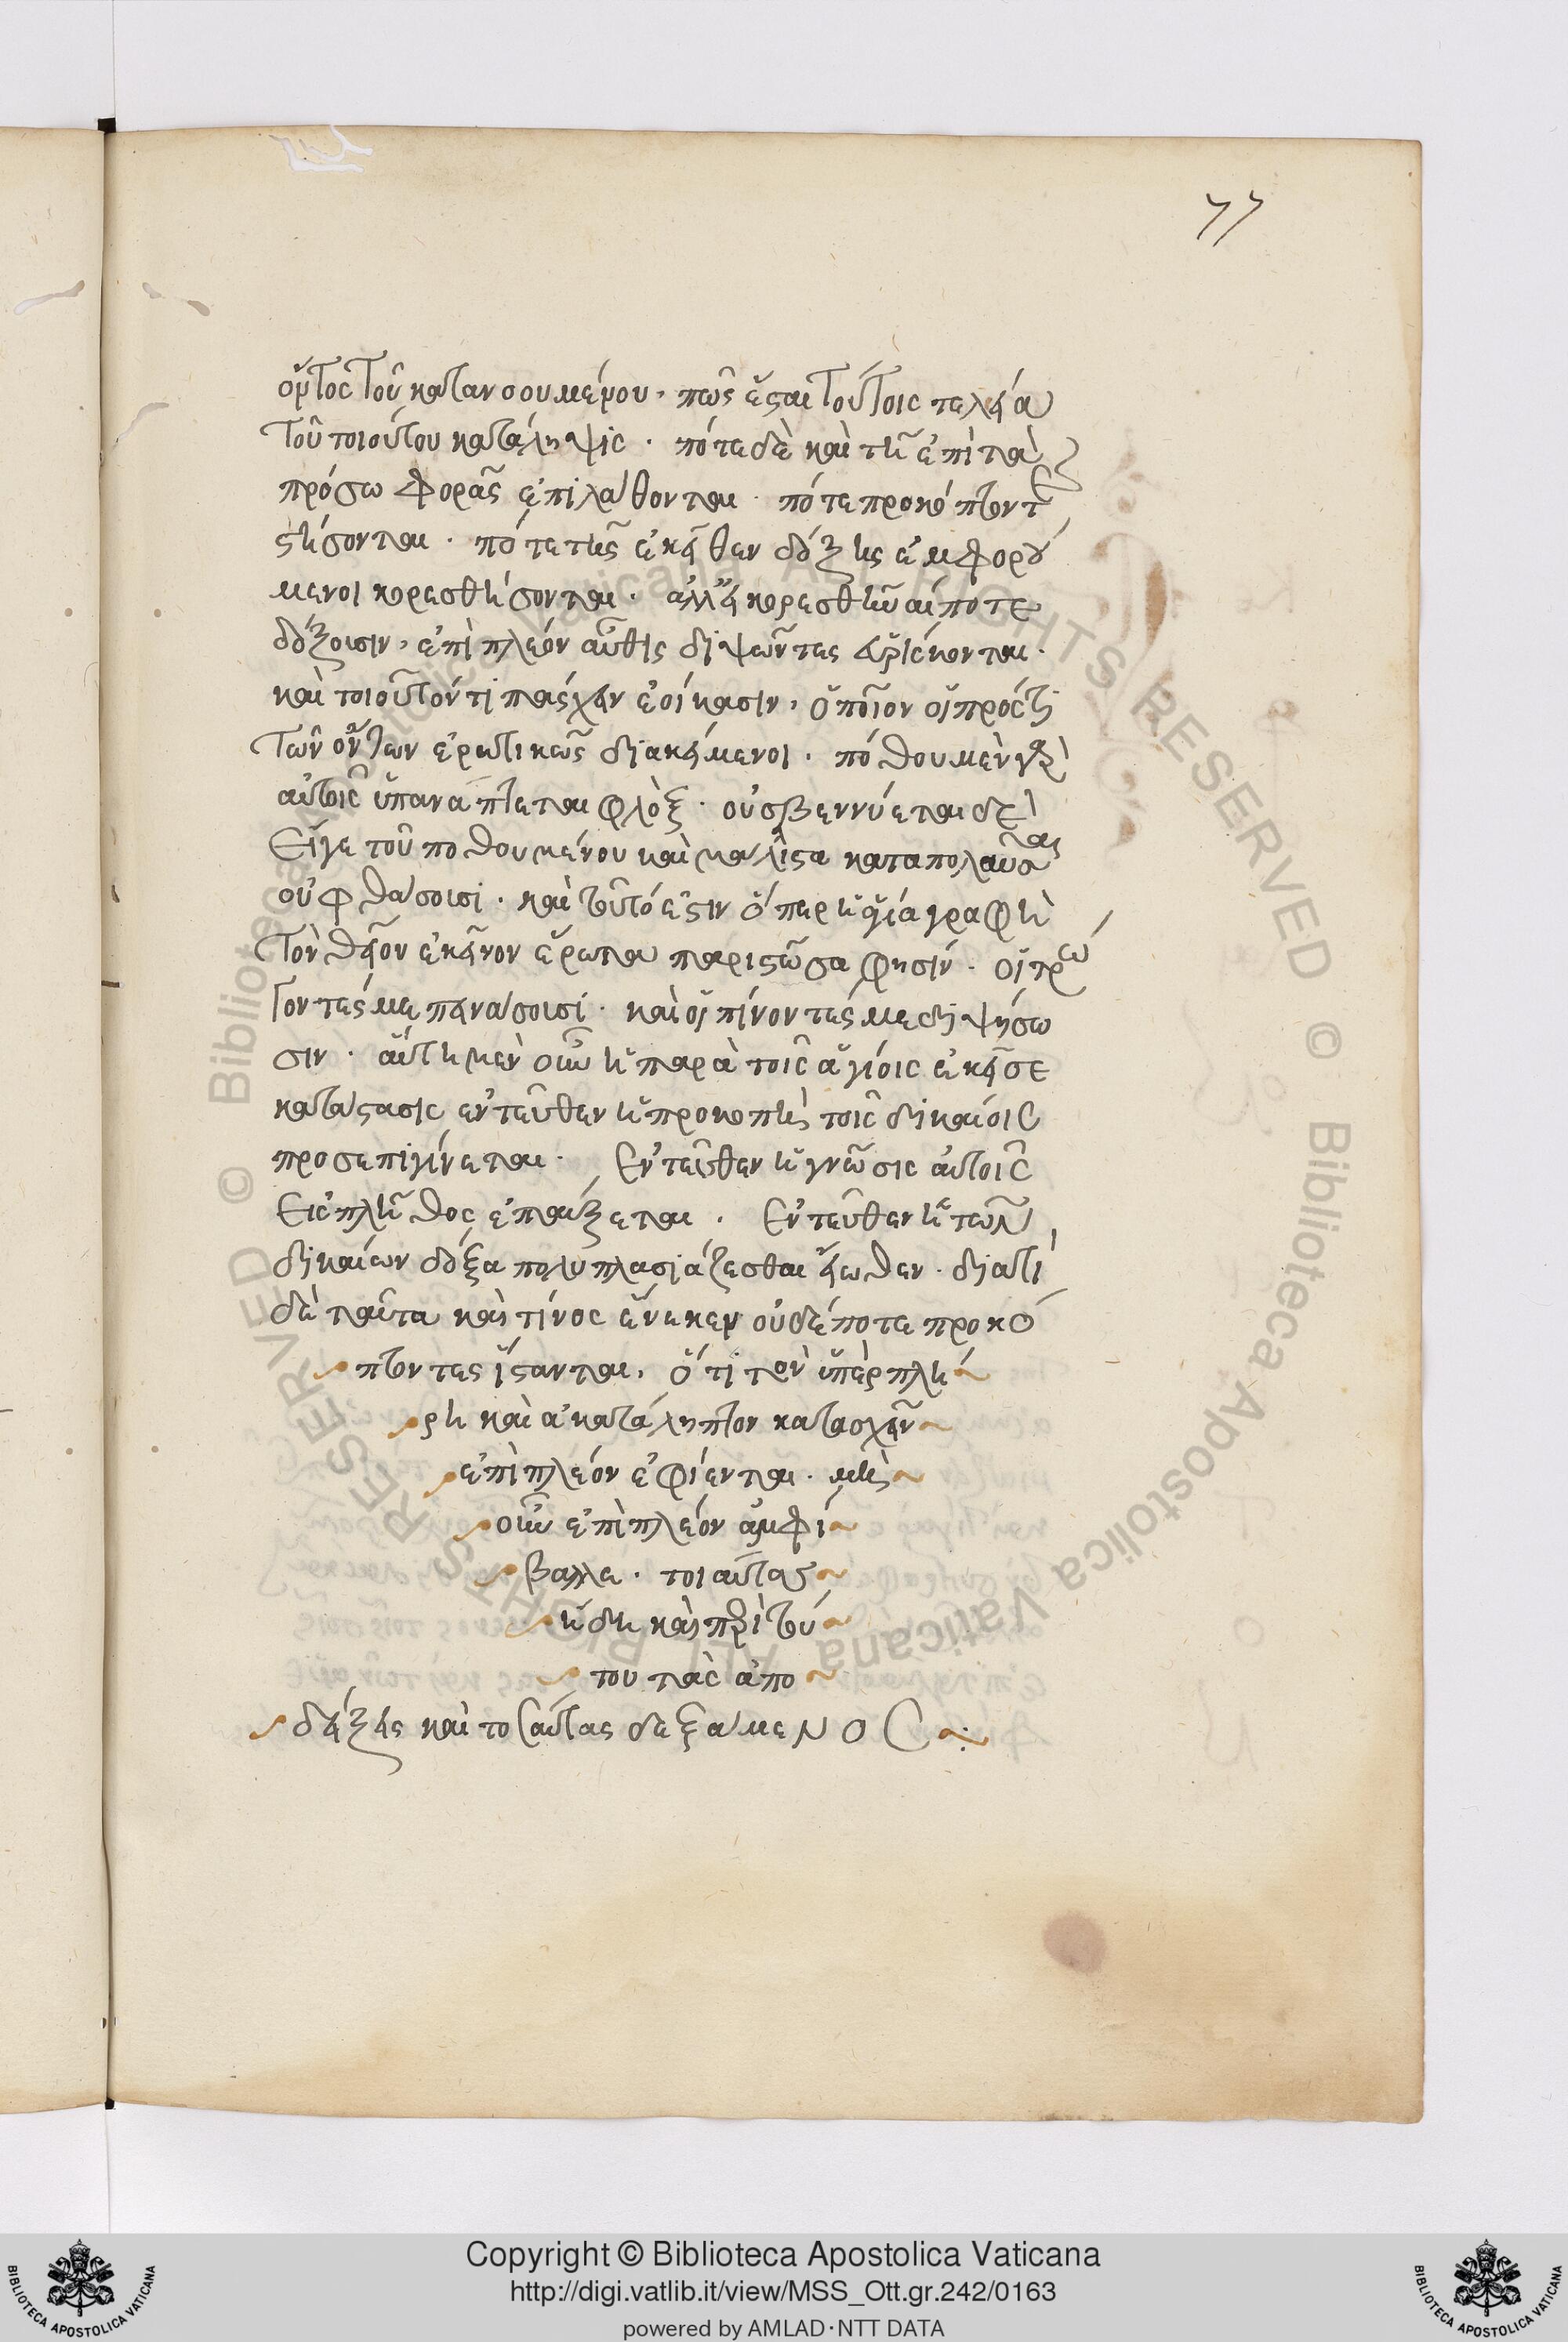 77
οὗτος τοῦ καταντουμένου, πῶς ἔσται τούτοις τελεία
τοῦ τοιούτου κατάληψις · πότε δὲ καὶ τῆς ἐπὶ τὰ
πρόσω φορᾶς ἐπιλάθονται · πότε προκόπτοντες
στήσονται · πότε τῆς ἐκεῖθεν δόξης ἐμφορού
μενοι κορεσθήσονται · ἀλλ' εἰ κορεσθῆναί ποτε
δόξοισιν, ἐπὶ πλέον αὖθις διψῶντες εὑρίσκονται ·
καὶ τοιοῦτόν τι πάσχειν ἐοίκασιν, ὁποῖον οἱ πρός τι
τῶν ὄντων ἐρωτικῶς διακείμενοι · πόθου μὲν γὰρ
αὐτοῖς ὑπανάπτεται φλόξ · οὐ σβεννύεται δὲ
εἴγε τοῦ ποθουμένου καὶ μάλιστα καταπολαῦσαι
οὐ φθάσοισι · καὶ τοῦτό ἐστιν ὅπερ ἡ θεία γραφὴ
τὸν θεῖον ἐκεῖνον ἔρωτα παριστῶσα φησίν · οἱ τρώ
γοντές με πεινάσοισι · καὶ οἱ πίνοντές με διψήσω
σιν · αὕτη μὲν οὖν ἡ παρὰ τοῖς ἁγίοις ἐκεῖσε
κατάστασις ἐντεῦθεν ἡ προκοπὴ τοῖς δικαίοις
προσεπιγίνεται · Ἐντεῦθεν ἡ γνῶσις αὐτοῖς
εἰς πλῆθος ἐπαύξεται · Ἐντεῦθεν ἡ τῶν
δικαίων δόξα πολυπλασιάζεσθαι εἴωθεν · διατί
δὲ ταῦτα καὶ τίνος ἕνεκεν οὐδέποτε προκό
πτοντες ἵστανται, ὅτι τὸν ὑπερπλή
ρη καὶ ἀκατάληπτον κατασχεῖν
ἐπὶ πλέον ἐφίενται · μὴ
οὖν ἐπὶ πλέον ἀμφί
βαλλε · τοιαύτας
ἤδη καὶ περὶ τού
του τὰς ἀπο
δείξεις καὶ τοσαύτας δεξάμενος
Copyright © Biblioteca Apostolica Vaticana
http://digi.vatlib.it/view/MSS_Ott.gr.242/0163
powered by AMLAD·NTT DATA